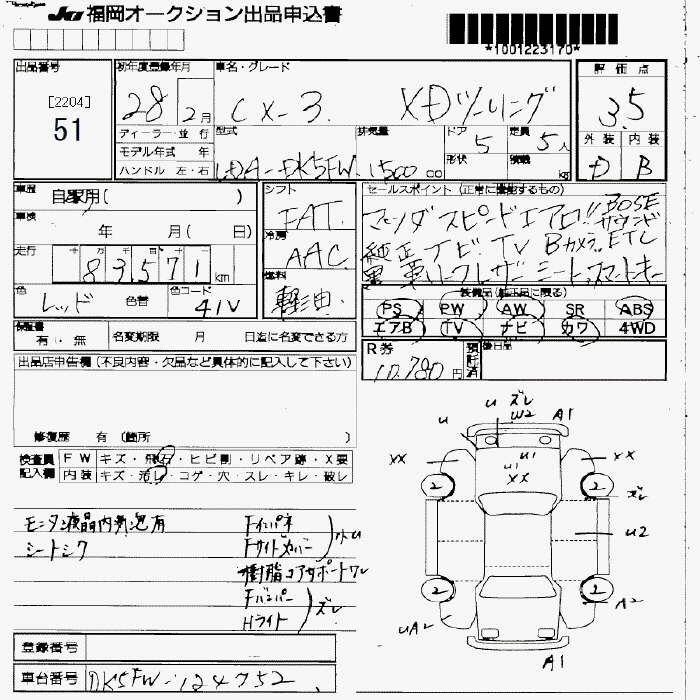 JU 福岡オークション出品申込書
*1001223170*
出品番号 [2204] 51
初年度登録年月 28 2月
車名・グレード CX-3 XDツーリング
評価点 3.5
外装 内装
D B
ディーラー・並行
モデル年式 年
ハンドル 左・右
型式 LDA-DK5FW
排気量 1500 cc
ドア 5 形状
定員 5人 積載 kg
車歴 自家用( )
車検 年 月( 日)
走行 83571 km
色 レッド 色替 色コード 41V
シフト FAT
冷房 AAC
燃料 軽油
セールスポイント (正常に機能するもの)
マツダスピードエアロ!! BOSEサウンド
純正ナビ TV Bカメラ ETC
黒革ハーフレザーシート スマートキー
装備品(純正品に限る)
PS PW AW SR ABS
エアB TV ナビ カワ 4WD
保証書 有・無 名変期限 月 日迄に名変できる方
R券 10,780円 預託済 後日品
出品店申告欄 (不良内容・欠品など具体的に記入して下さい)
修復歴 有 (箇所 )
検査員記入欄
FW キズ・飛石・ヒビ割・リペア跡・X要
内装 キズ・汚レ・コゲ・穴・スレ・キレ・破レ
モニター液晶内気泡有
シートシワ
Fインパネ
Fサイドカバー
樹脂コアサポートワレ
Fバンパー
Hライト
ズレ
U U ズレ W2 A1
U1 U1 XX
XX XX
2 2
ズレ
U2
2 2
UA2 A2
A1
登録番号
車台番号 DK5FW-124752